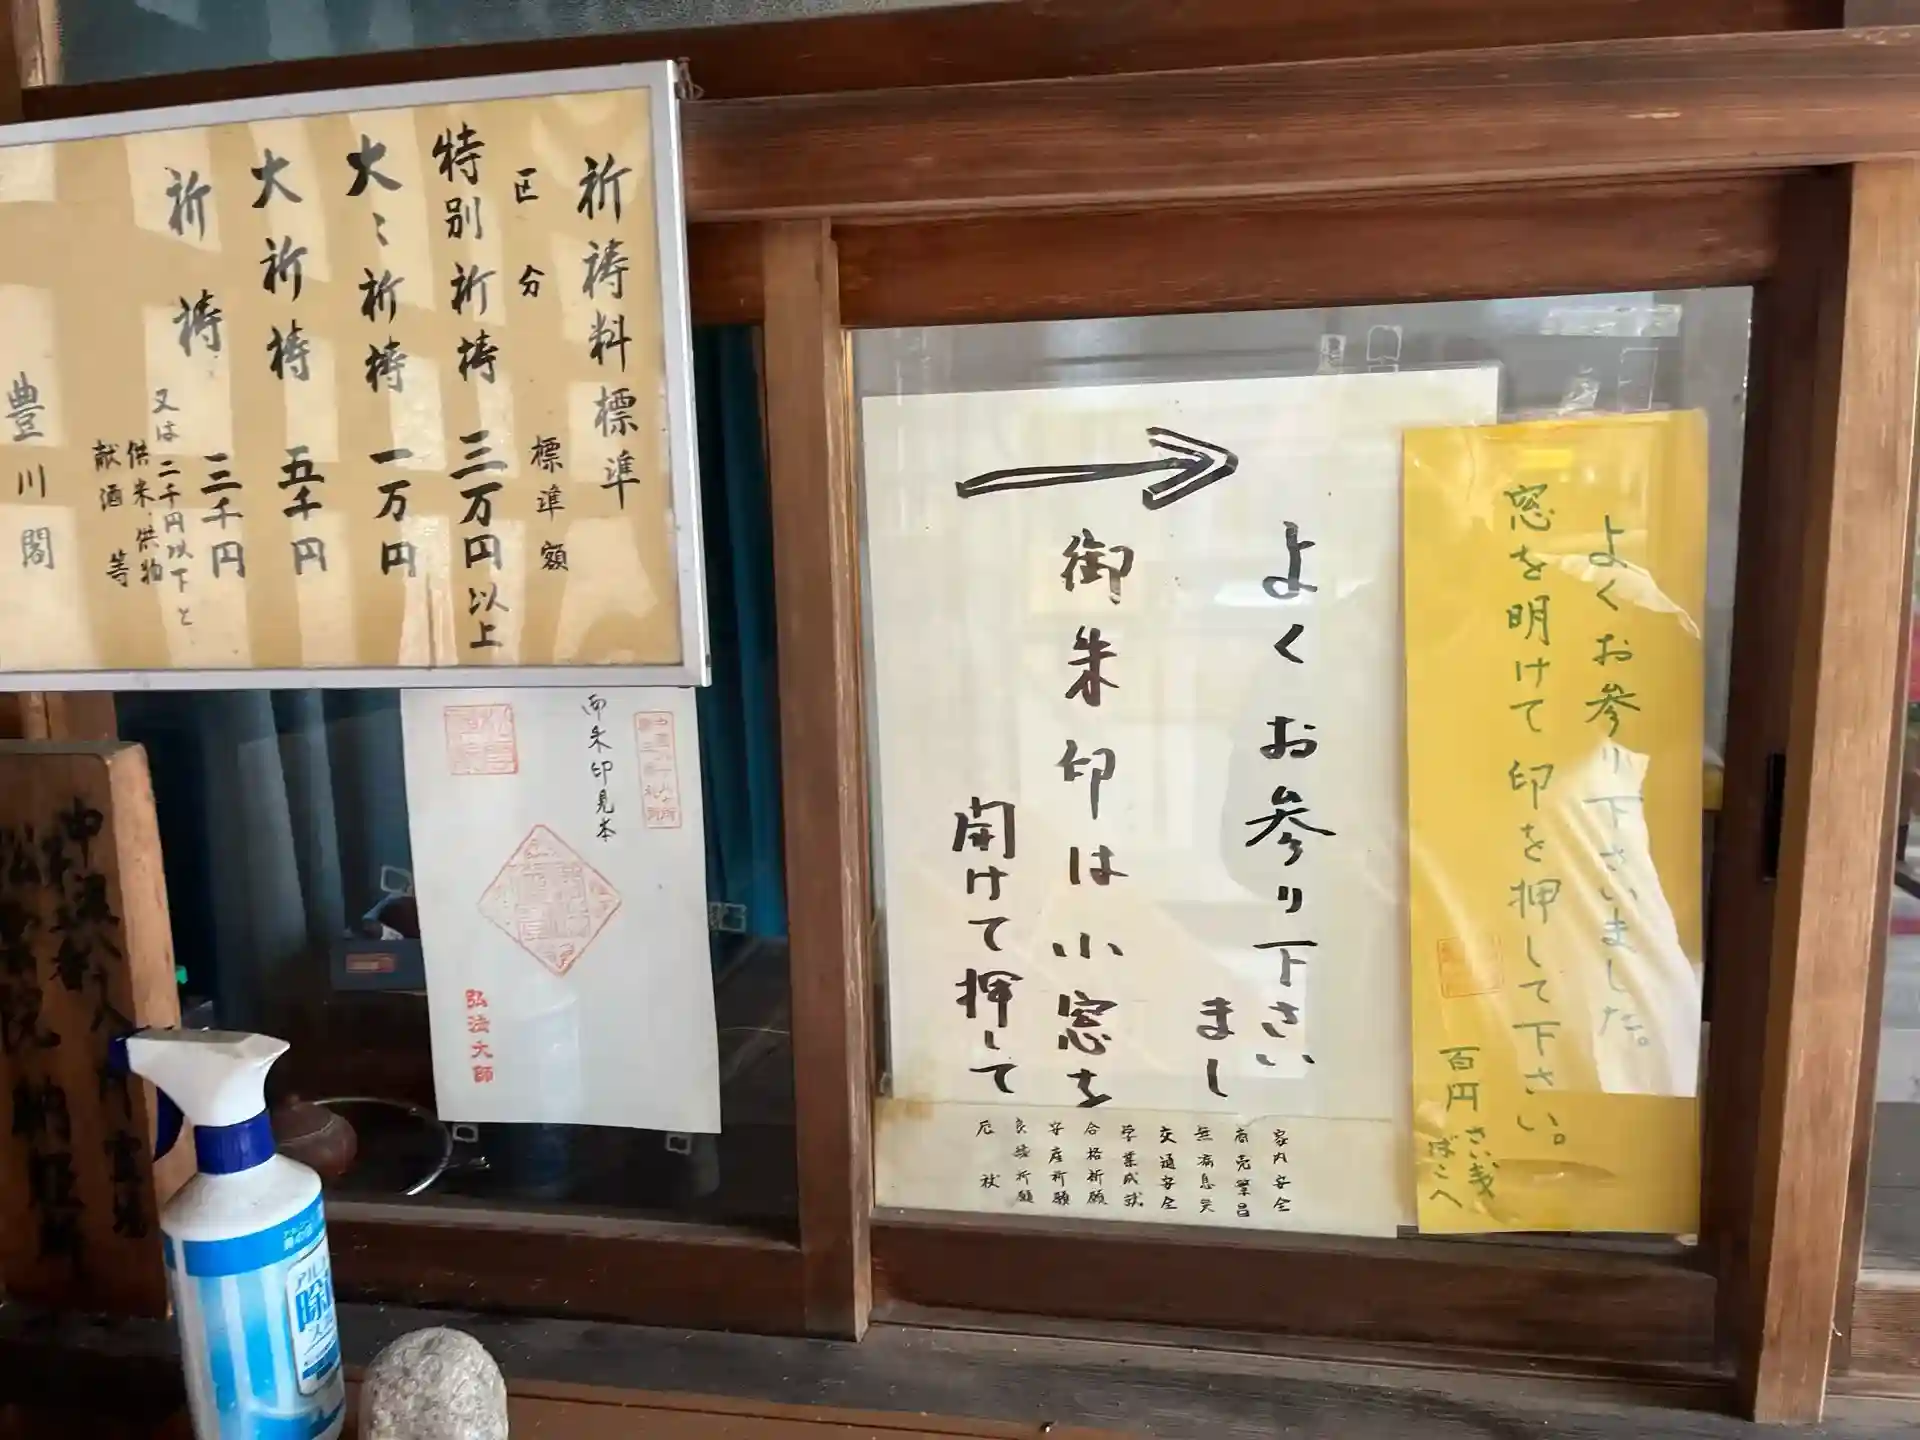 祈祷料標準
区分 標準額
特別祈祷 三万円以上
大〻祈祷 一万円
大祈祷 五千円
祈祷 三千円
又は二千円以下と
供米供物
献酒等
豊川閣
御朱印見本
弘法大師
よくお参り下さい
まし
御朱印は小窓を
開けて押して
家内安全
商売繁昌
無病息災
交通安全
学業成就
合格祈願
安産祈願
良縁祈願
厄祓
よくお参り下さいました。
窓を明けて印を押して下さい。
百円
さい戔
ばこへ